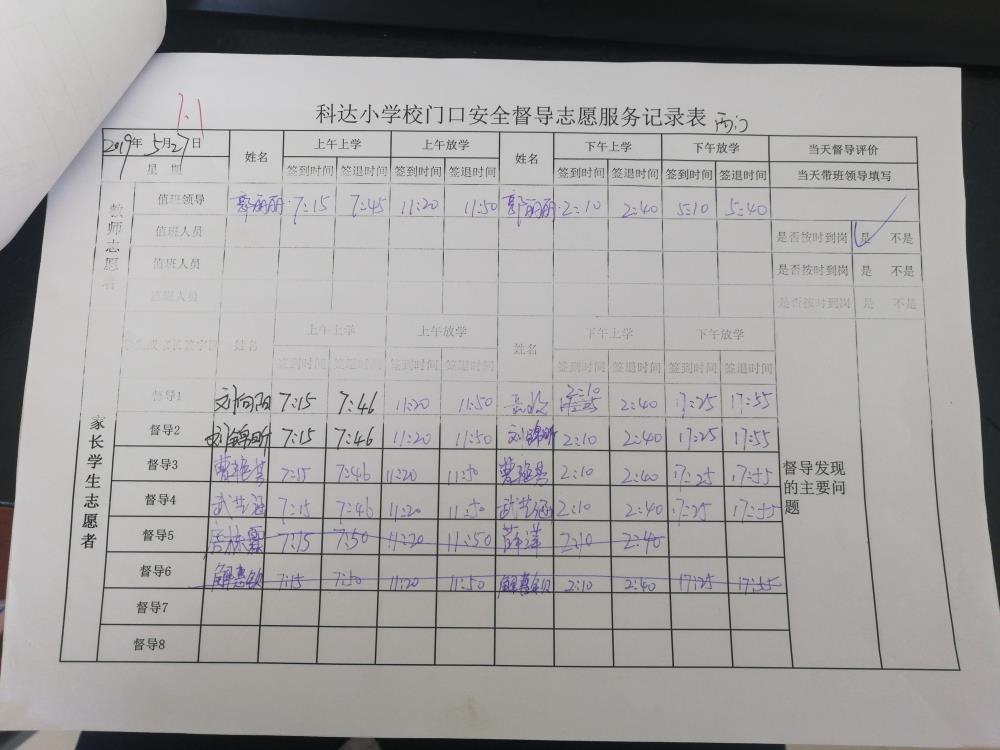 7.1
科达小学校门口安全督导志愿服务记录表 西门
2019年5月27日 姓名 上午上学 上午放学 姓名 下午上学 下午放学 当天督导评价
星 期 签到时间 签退时间 签到时间 签退时间 签到时间 签退时间 签到时间 签退时间 当天带班领导填写
教师志愿者
值班领导 郭丽丽 7:15 7:45 11:20 11:50 郭丽丽 2:10 2:40 5:10 5:40
值班人员 是否按时到岗 是 不是
值班人员 是否按时到岗 是 不是
值班人员 是否按时到岗 是 不是
姓名 上午上学 上午放学 姓名 下午上学 下午放学
签到时间 签退时间 签到时间 签退时间 签到时间 签退时间 签到时间 签退时间
家长学生志愿者
督导1 刘向阳 7:15 7:46 11:20 11:50 2:10 2:40 17:25 17:55
督导2 刘锦昕 7:15 7:46 11:20 11:50 刘锦昕 2:10 2:40 17:25 17:55
督导3 7:15 7:46 11:20 11:50 2:10 2:40 17:25 17:55
督导4 7:15 7:46 11:20 11:50 2:10 2:40 17:25 17:55
督导5 7:15 7:50 11:20 11:50 薛莲 2:10 2:40
督导6 7:15 7:50 11:20 11:50 2:10 2:40 17:25 17:55
督导7
督导8
督导发现
的主要问
题